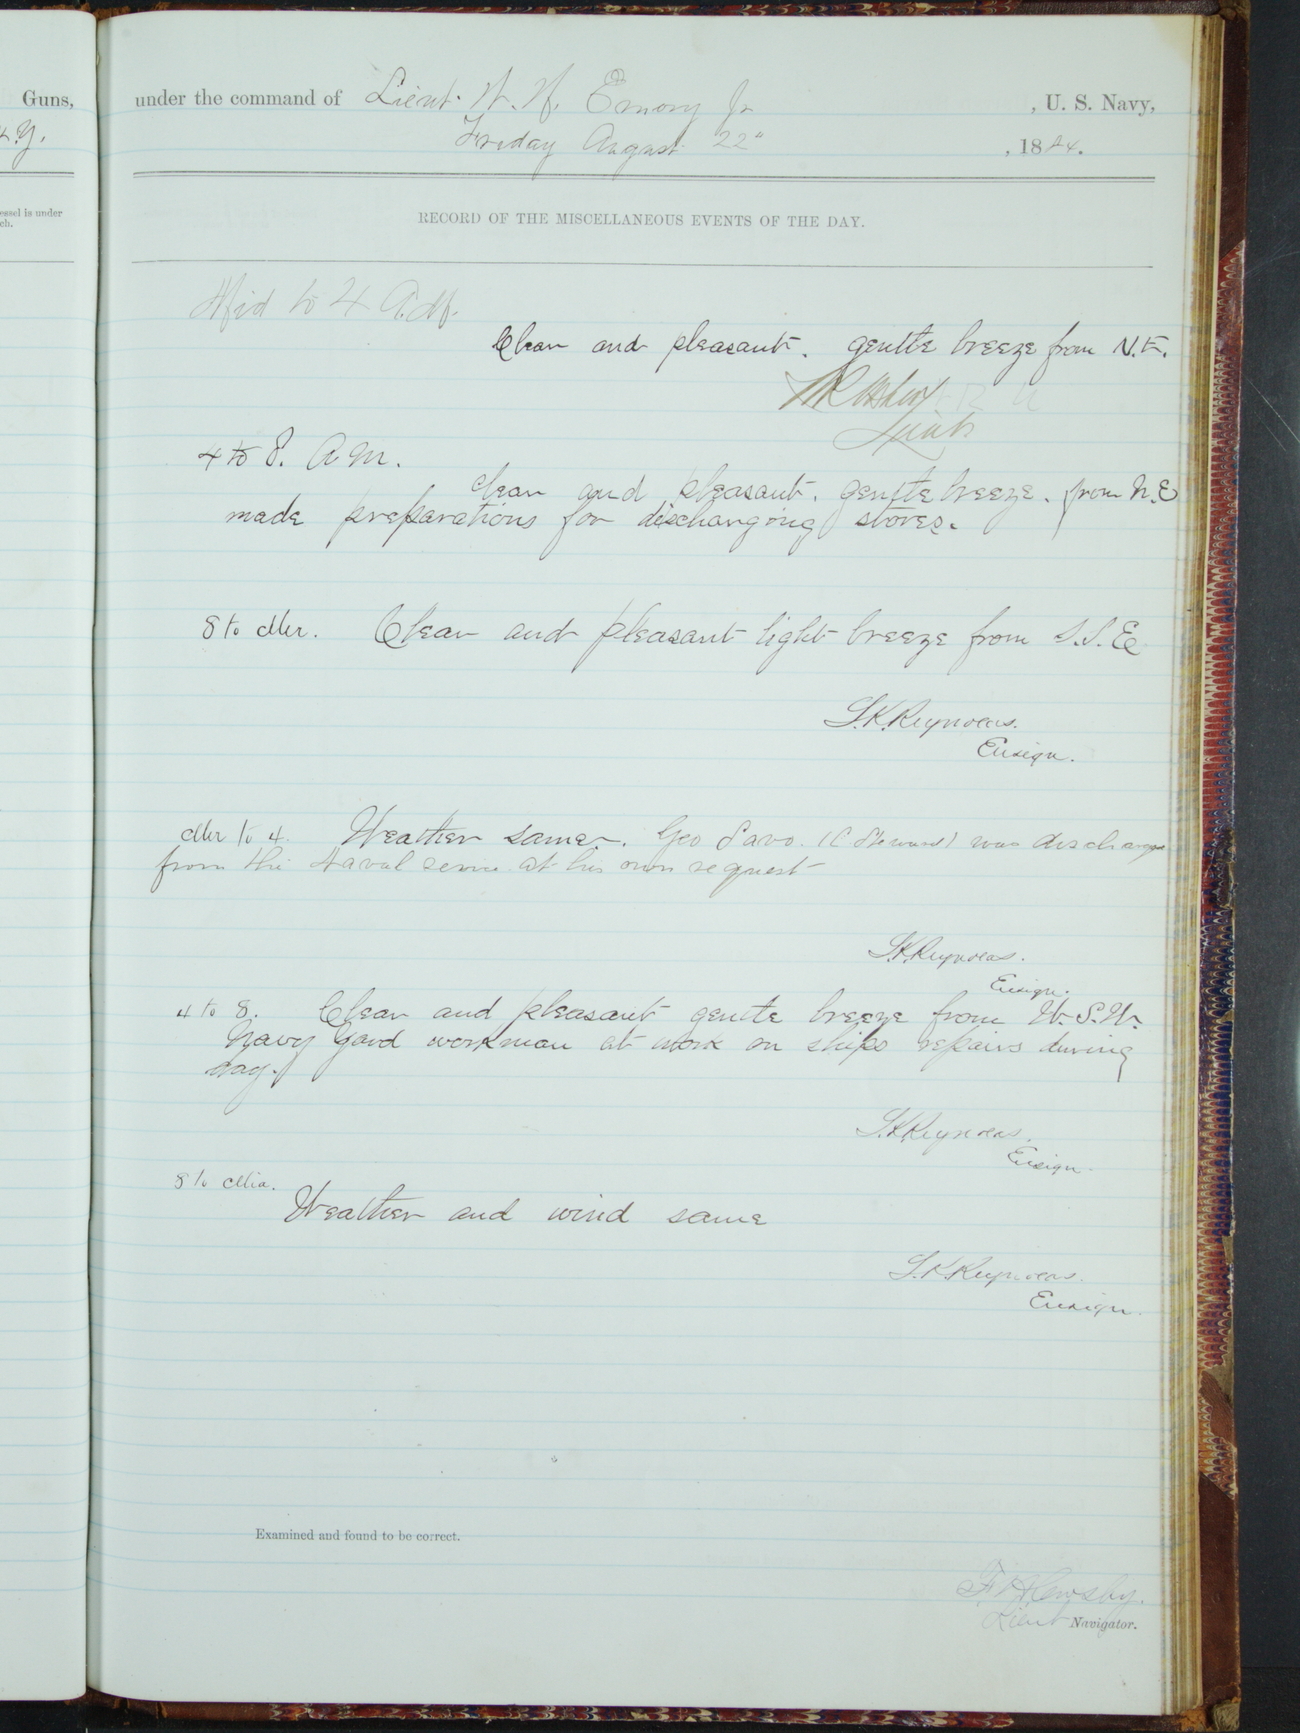 Guns,
under the command of Lieut. W. H. Emory Jr , U. S. Navy,
Friday August 22" , 1884.
essel is under
ch.
RECORD OF THE MISCELLANEOUS EVENTS OF THE DAY.
Mid to 4 A.M.
Clear and pleasant. gentle breeze from N.E.
Lieut
4 to 8. A.M.
Clear and pleasant. gentle breeze. from N.E
made preparations for dischanging stores.
8 to Mer. Clear and pleasant light breeze from S.S.E
S.K.Reynolds.
Ensign.
Mer to 4. Weather same. Geo Savo. (C Steward) was discharge
from the Naval service at his own request
S.K.Reynolds.
Ensign.
4 to 8. Clear and pleasant gentle breeze from W.S.W.
Navy Yard workman at work on ships repairs during
day.
S.K.Reynolds.
Ensign.
8 to Mid.
Weather and wind same
S.K.Reynolds.
Ensign.
Examined and found to be correct.
Lieut Navigator.